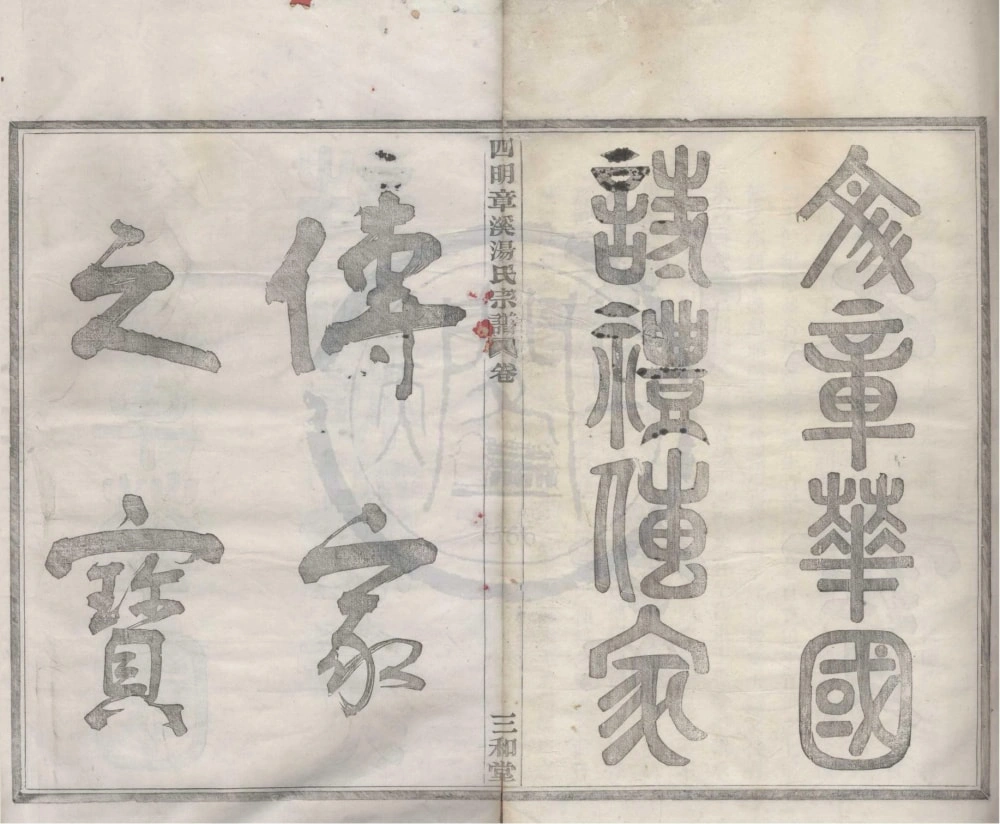 文章華國
詩禮傳家
四明章溪湯氏宗譜 卷 三和堂
傳家
之寶